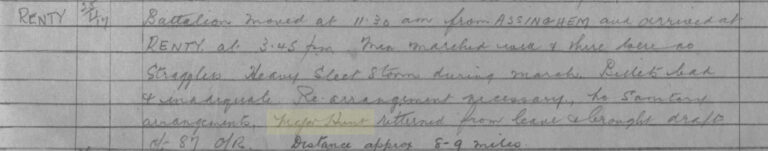 RENTY 25/4/17 Battalion moved at 11.30 am from ASSINGHEM and arrived at
RENTY at 3.45 pm Men marched well & there were no
Stragglers Heavy Sleet Storms during march. Billets bad
& inadequate Re-arrangement necessary, no Sanitary
arrangements, Major Hunt returned from leave & brought draft
of 87 O/R. Distance approx 8-9 miles.